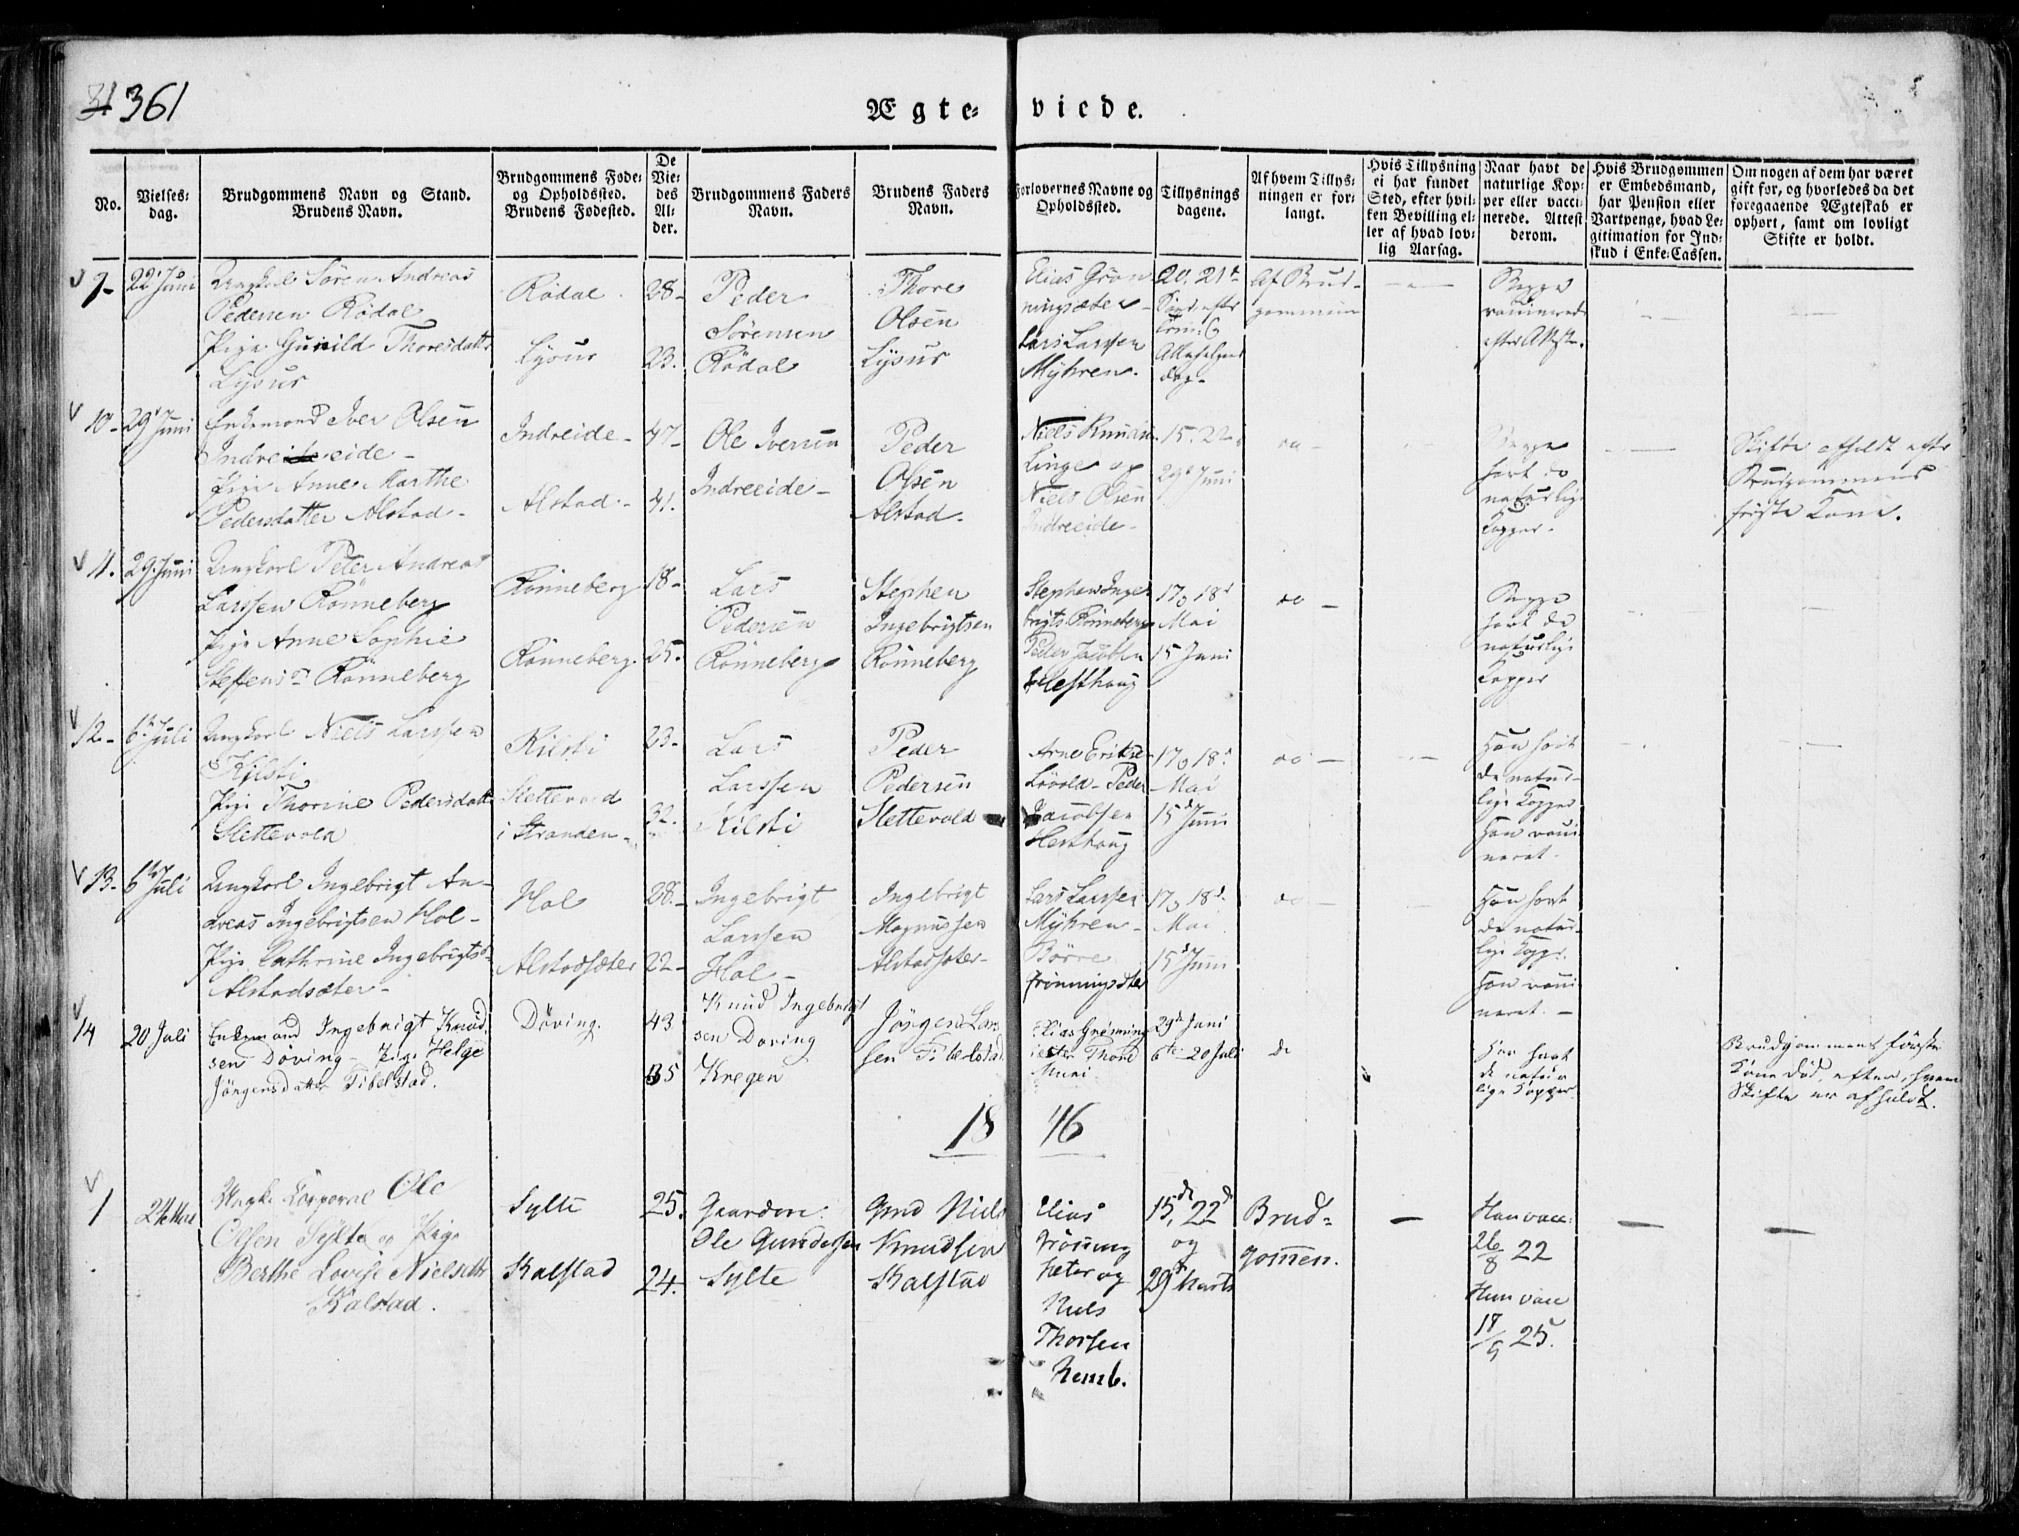 361
Ægte=
viede.
No.
Vielses=
dag.
Brudgommens Navn og Stand.
Brudens Navn.
Brudgommens Føde=
og Opholdssted.
Brudens Fødested.
De
Vie=
des
Al=
der.
Brudgommens Faders
Navn.
Brudens Faders
Navn.
Forlovernes Navne og
Opholdssted.
Tillysnings
dagene.
Af hvem Tillys=
ningen er for=
langt.
Hvis Tillysning
ei har fundet
Sted, efter hvil=
ken Bevilling el=
ler af hvad lov=
lig Aarsag.
Naar havt de
naturlige Kop=
per eller vacci=
nerede. Attest
derom.
Hvis Brudgommen
er Embedsmand,
har Pension eller
Vartpenge, hvad Le=
gitimation for Ind=
skud i Enke=Cassen.
Om nogen af dem har været
gift før, og hvorledes da det
foregaaende Ægteskab er
ophørt, samt om lovligt
Skifte er holdt.
9-
22 Juni
Ungkarl Sören Andreas
Pedersen Rödal
Pige Gunild Thoresdatter
Lysur
Rödal
Lysur
28-
23.
Peder
Sörensen
Rödal
Thore
Olsen
Lysur
Elias Grön
ningsæter
Lars Larssen
Myhren.
20, 21
Af Brud-
gommen
Begge
vaccinerede
efter Attester.
10-
29 Juni
Enkemand Iver Olsen
Indreeide-
Pige Anne Marthe
Pedersdatter Alstad-
Indreeide-
Alstad-
47-
41.
Ole Iversen
Indreeide-
Peder
Olsen
Alstad.
Niels Knuds.
Linge og
Niels Olsen
Indreeide-
15. 22
29 Juni
do-
Begge
havt de
naturlige
Kopper.
Skifte afholdt efter
Brudgommens
første Kone.
11.
29 Juni
Ungkarl Peter Andreas
Larssen Rönneberg
Pige Anne Sophie
Steffensd Rönneberg
Rönneberg
Rönneberg.
18-
25.
Lars
Pedersen
Rönneberg
Stephen
Ingebrigtsen
Rönneberg
Stephen Inge
brigts Rönneberg
Peder Jacobsen
Hesthaug
17, 18
Mai
15 Juni
do-
Begge
havt de
naturlige
Kopper
12-
6 Juli
Ungkarl Niels Larssen
Kilsti
Pige Thorine Pedersdatter
Slettevold
Kilsti
Slettevold
i Stranden-
23-
32.
Lars
Larssen
Kilsti
Peder
Pedersen
Slettevold
Arne Eriks
Lövold- Peder
Jacobsen
Hesthaug
17, 18
Mai
15 Juni
do-
Han havt
de natur-
lige Kopper
Hun vacci
neret.
13-
6 Juli
Ungkarl Ingebrigt An-
dreas Ingebrigtsen Hol-
Pige Cathrine Ingebrigtsd
Alstadsæter-
Hol
Alstadsæter
28.-
22-
Ingebrigt
Larssen
Hol-
Ingebrigt
Magnussen
Alstadsæter-
Lars Larssen
Myhren-
Börre
Grönningsæter
17, 18
Mai
15 Juni
do-
Han havt
de natur-
lige Kopper.
Hun vacci
neret.-
14
20 Juli
Enkemand Ingebrigt Knud
sen Döving- Pige Helge
Jörgensdatter Fibelstad.
Döving.
43
35
Knud Ingebrigt
sen Döving
Kregen
Jörgen Lars
sen Fibelstad
Elias Grönning
sæter Thore
Muri
29 Juni
6te 20 Juli
do
Har havt
de natur
lige Kopper
Brudgommens første
Kone död, efter hvem
Skifte er afholdt.
18 46
1
Ungk. Corporal Ole
Olsen Sylte og Pige
Berthe Lovise Nielsdtr
Kalstad.
Sylte
Kalstad
25.
24.
Gaardm:
Ole Gundersen
Sylte
Gmd Niels
Knudsen
Kalstad
Elias
Grönning
sæter og
Niels
Thorsen
Remb.
15, 22
og
29 Marts
Brud=
gomen.
-
Han vacc:
26/8 22
Hun vacc
18/9 25.
-
-